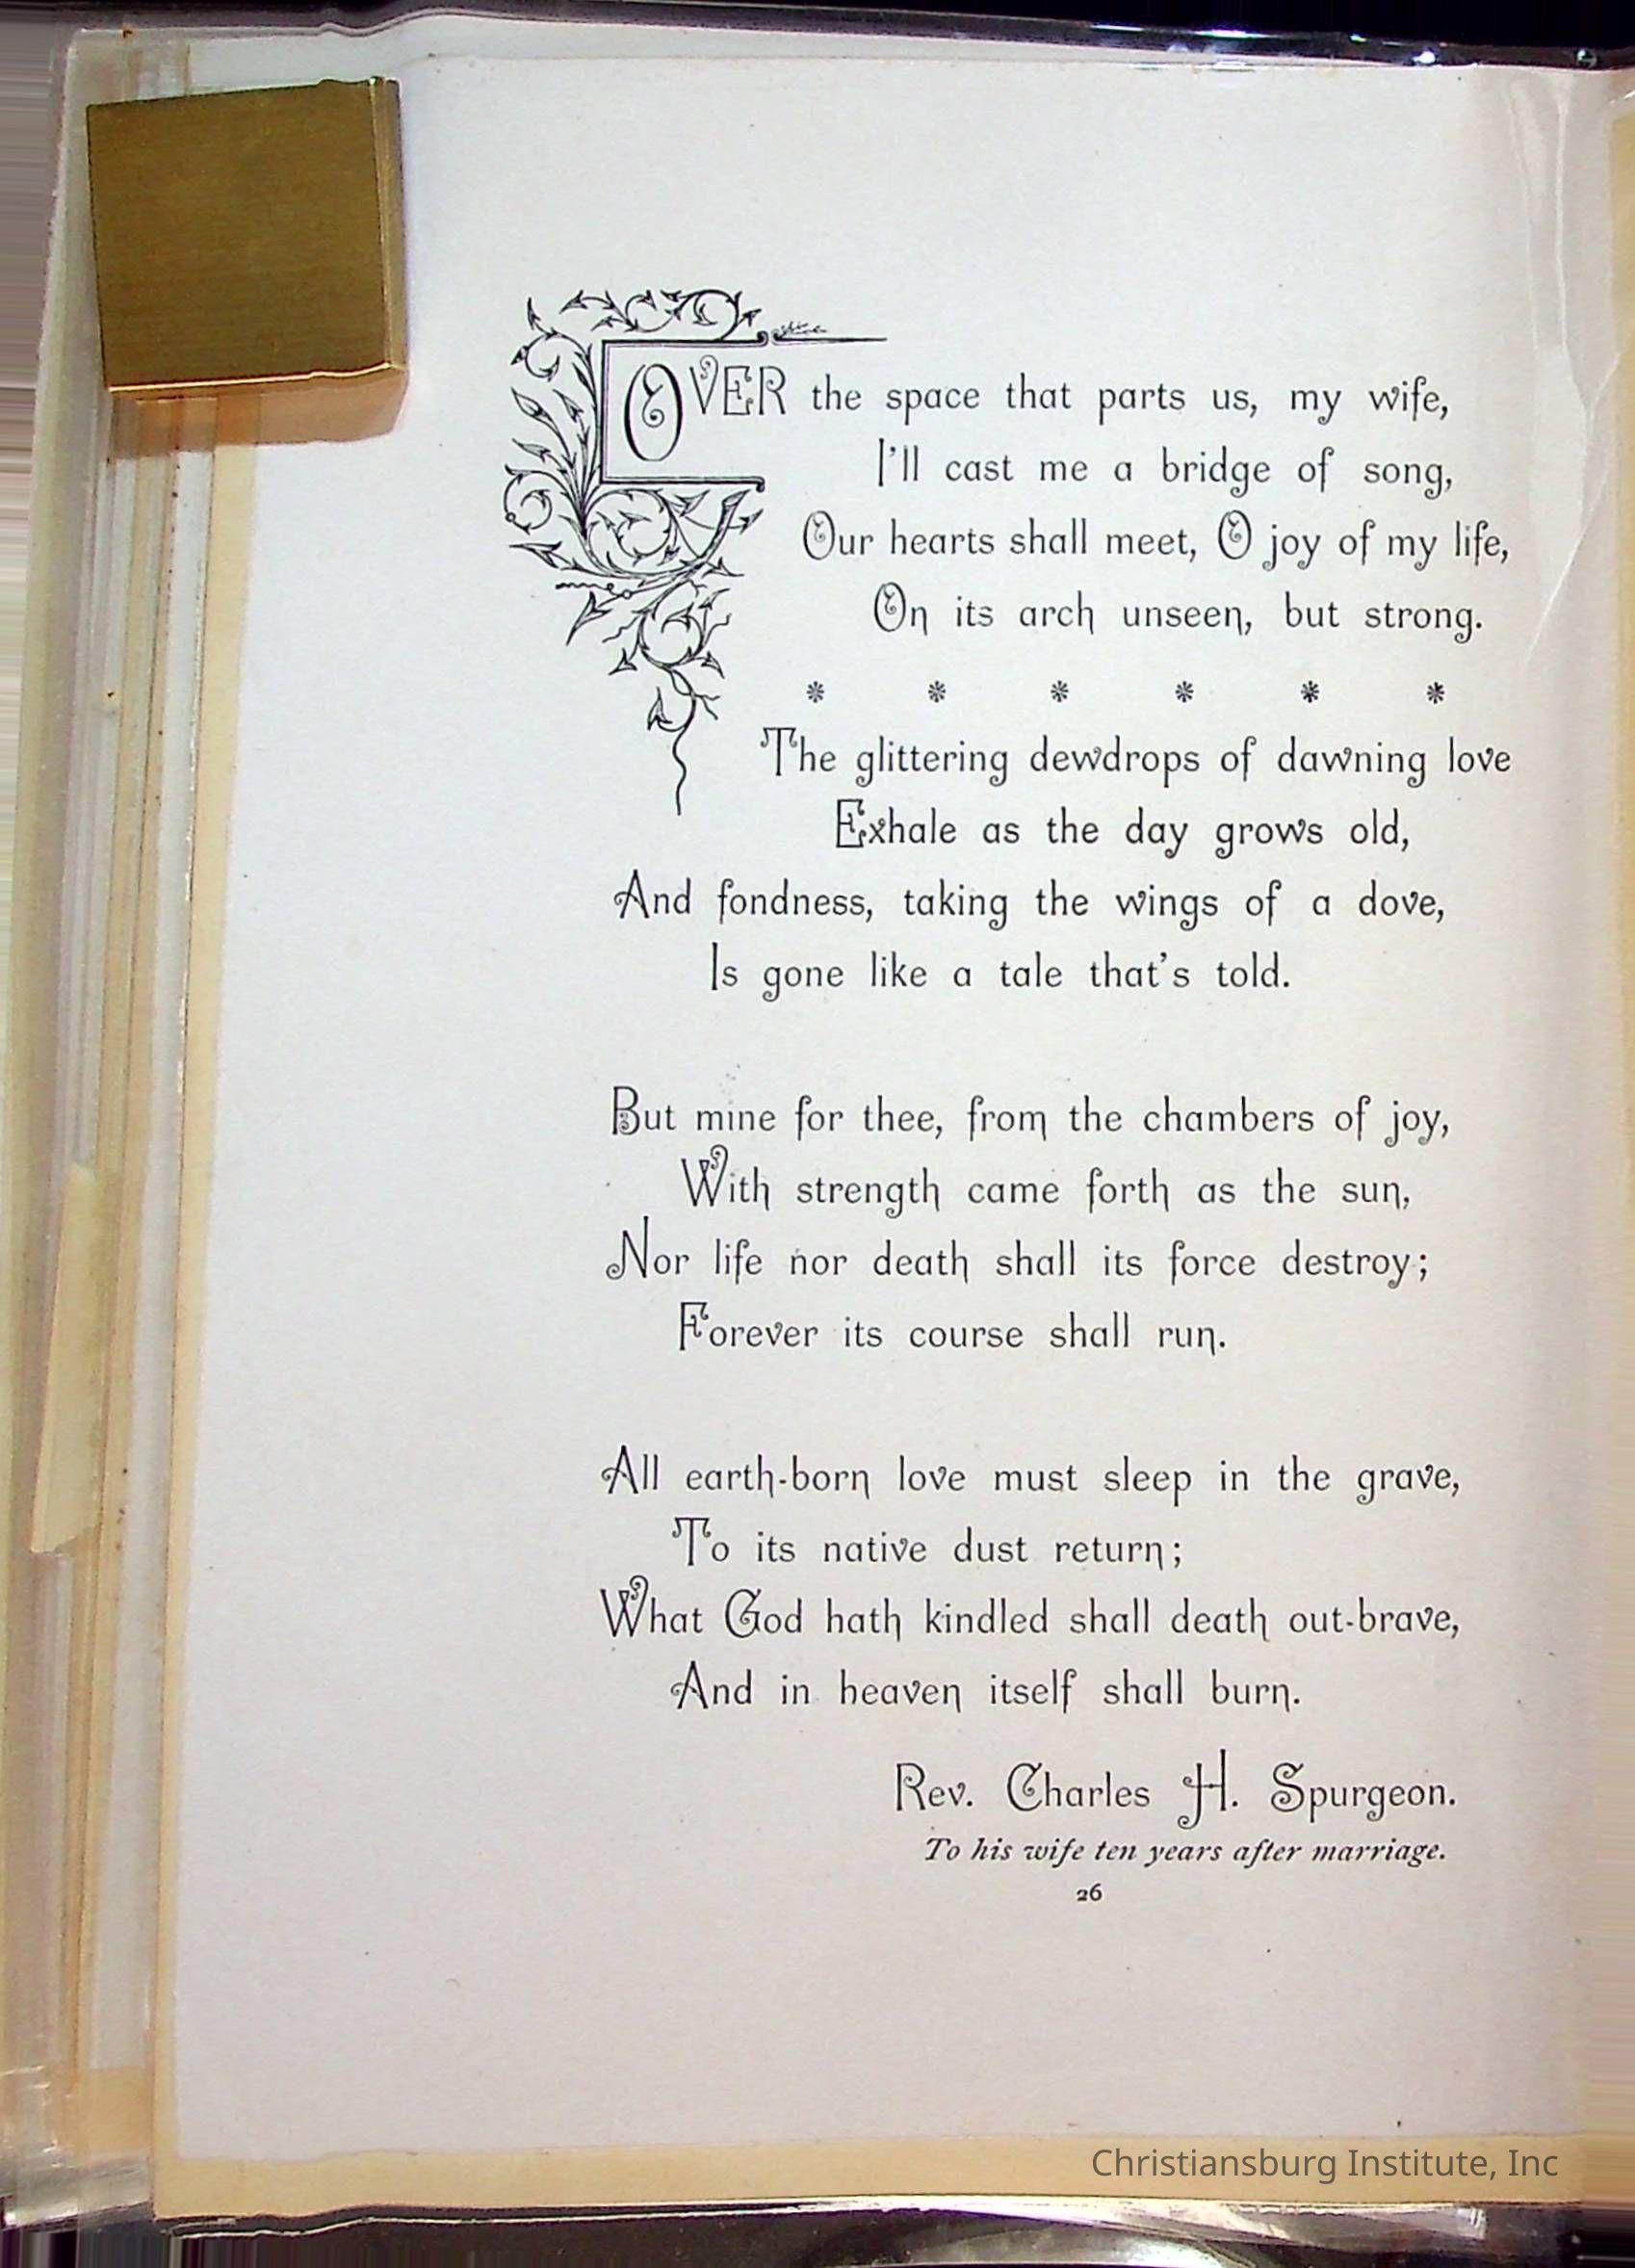 OVER the space that parts us, my wife,
I'll cast me a bridge of song,
Our hearts shall meet, O joy of my life,
On its arch unseen, but strong.
* * * * * *
The glittering dewdrops of dawning love
Exhale as the day grows old,
And fondness, taking the wings of a dove,
Is gone like a tale that's told.
But mine for thee, from the chambers of joy,
With strength came forth as the sun,
Nor life nor death shall its force destroy;
Forever its course shall run.
All earth-born love must sleep in the grave,
To its native dust return;
What God hath kindled shall death out-brave,
And in heaven itself shall burn.
Rev. Charles H. Spurgeon.
To his wife ten years after marriage.
26
Christiansburg Institute, Inc